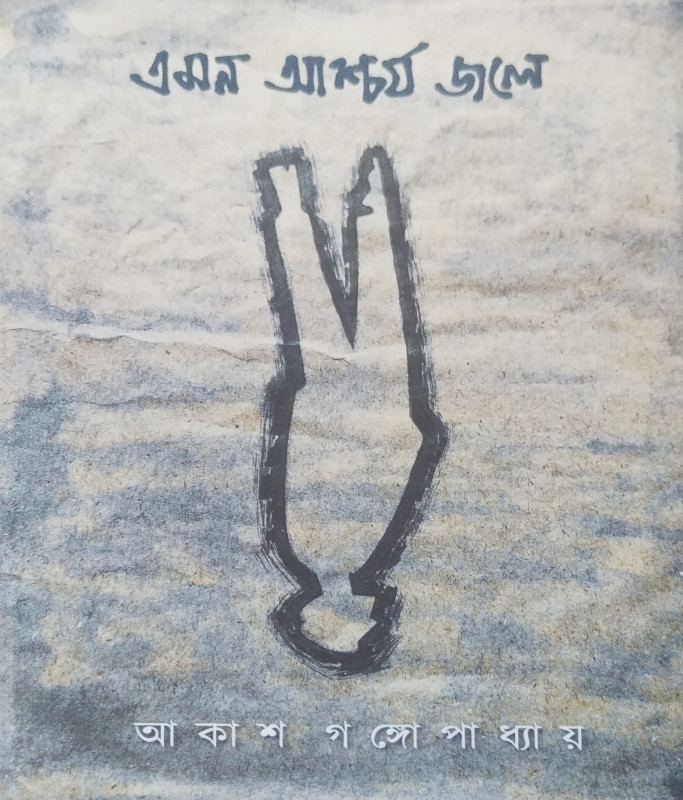 এমন আশ্চর্য জলে
আকাশ গঙ্গোপাধ্যায়